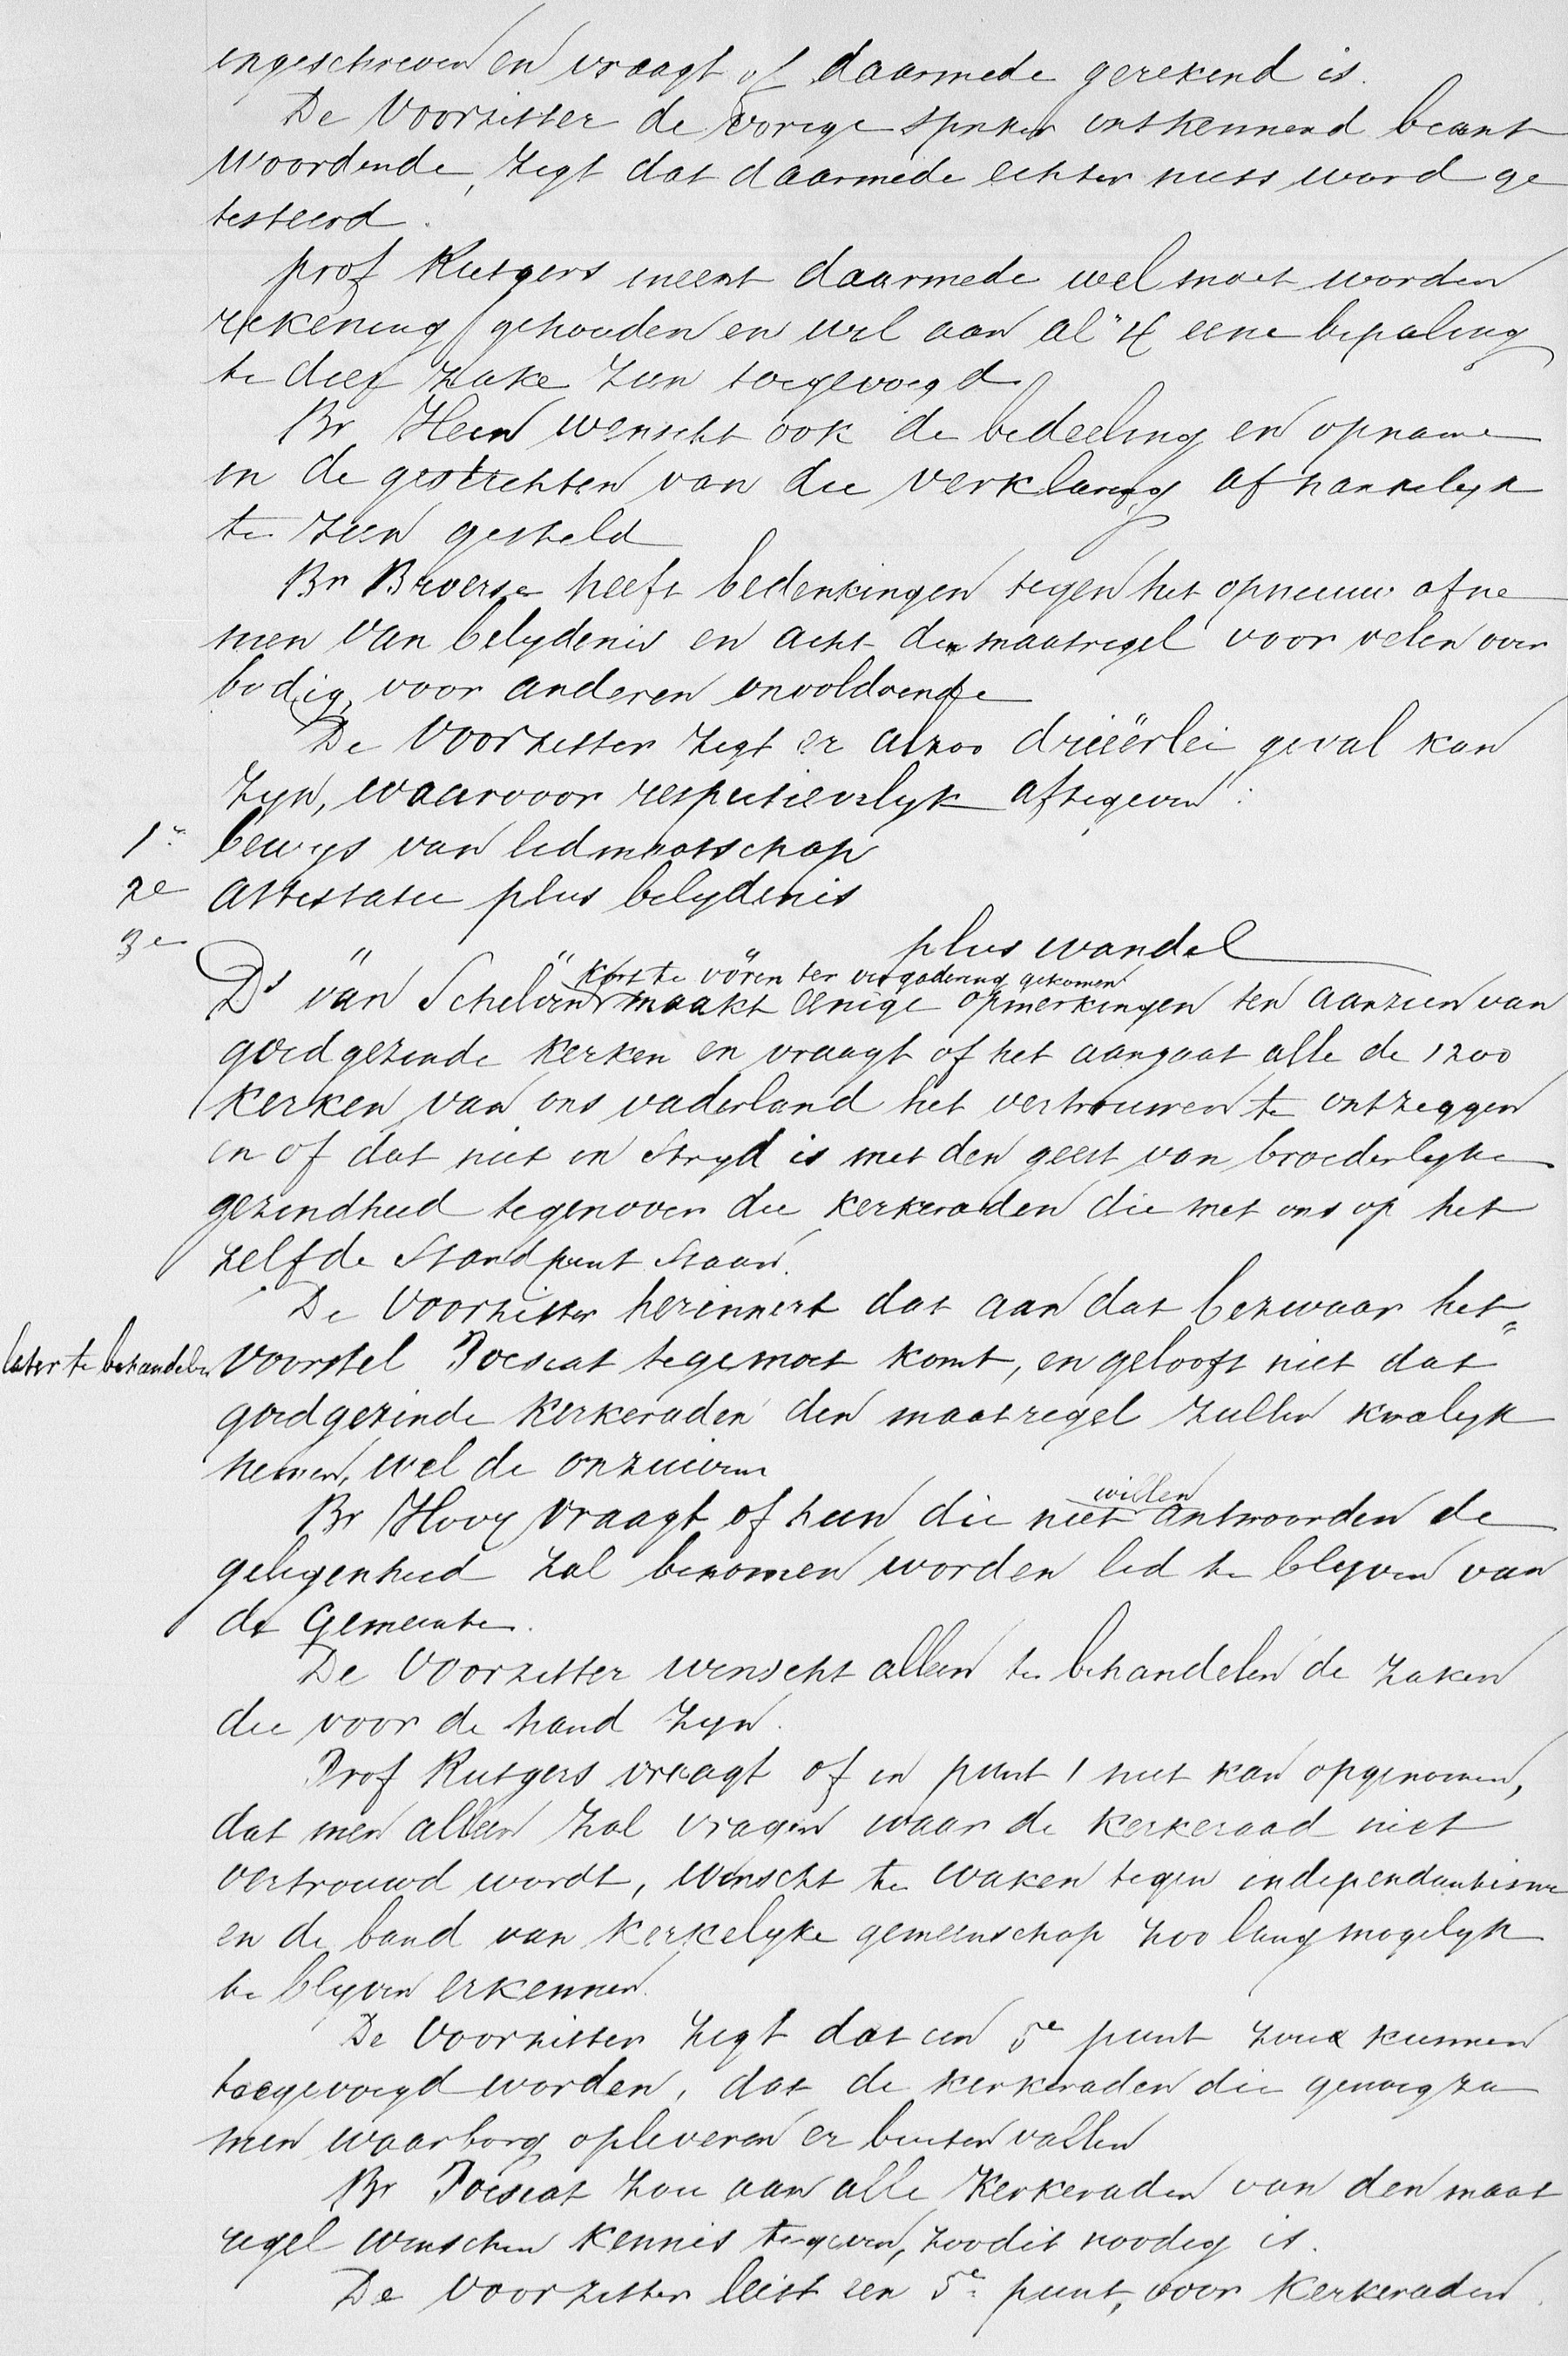 ingeschreven en vraagt of daarmede gerekend is.
De Voorzitter de vorige spreker ontkennend beant
woordende, zegt dat daarmede echter niets word ge
testeerd.
prof Rutgers meent daarmede wel moet worden
rekening gehouden en wil aan al. 4 eene bepaling
te dier zake zien toegevoegd
Br Hein wenscht ook de bedeeling en opname
in de gestichten van die verklaring afhankelijk
te zien gesteld
Br Broerse heeft bedenkingen tegen het opnieuw afne
men van belydenis en acht den maatregel voor velen over
bodig, voor anderen onvoldoende
De Voorzitter zegt er alzoo drieërlei geval kan
zyn, waarvoor respectievelyk aftegeven:
1e bewys van lidmaatschap
2e Attestatie plus belydenis
3e " " " plus wandel
kort te voren ter vergadering gekomen
Ds van Schelven maakt eenige opmerkingen ten aanzien van
goedgezinde kerken en vraagt of het aangaat alle de 1200
kerken van ons vaderland het vertrouwen te ontzeggen
en of dat niet in Stryd is met den geest van broederlyke
gezindheid tegenover die kerkeraden die met ons op het
zelfde Standpunt Staan.
De Voorzitter herinnert dat aan dat bezwaar het
later te behandelen voorstel Poesiat tegemoet komt, en gelooft niet dat
goedgezinde Kerkeraden den maatregel zullen kwalyk
nemen, wel de onzuivere
Br Hovy vraagt of hen die niet willen antwoorden de
gelegenheid zal benomen worden lid te blyven van
de Gemeente.
De Voorzitter wenscht alleen te behandelen de zaken
die voor de hand zyn.
Prof Rutgers vraagt of in punt 1 niet kan opgenomen,
dat men alleen zal vragen waar de Kerkeraad niet
vertrouwd wordt, wenscht te waken tegen independantisme
en de band van Kerkelyke gemeenschap zoo lang mogelyk
te blyven erkennen.
De Voorzitter zegt dat een 5e punt zoude kunnen
toegevoegd worden, dat de kerkeraden die genoegza
men waarborg opleveren er buiten vallen
Br Poesiat zou aan alle Kerkeraden van den maat
regel wenschen kennis tegeven, zoo dit noodig is.
De Voorzitter leest een 5e punt, voor Kerkeraden